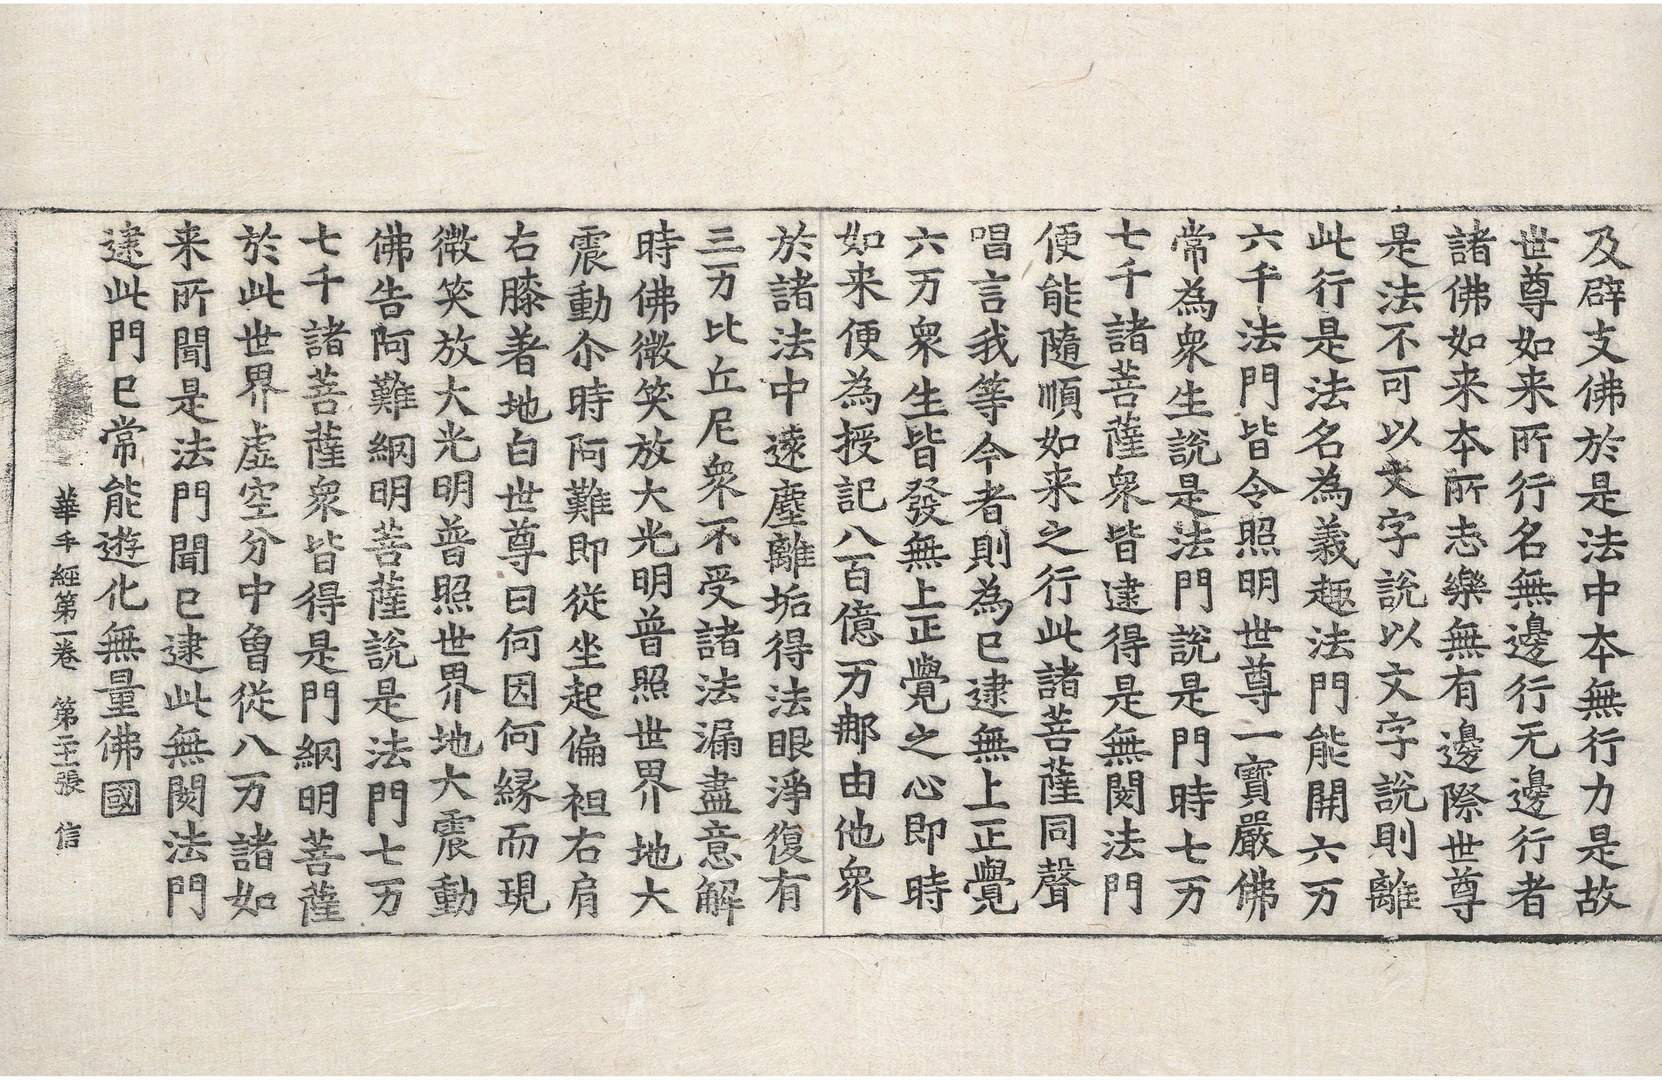 及辟支佛於是法中本無行力是故
世尊如来所行名無邊行无邊行者
諸佛如来本所志樂無有邊際世尊
是法不可以文字說以文字說則離
此行是法名為義趣法門能開六万
六千法門皆令照明世尊一寶嚴佛
常為衆生說是法門說是門時七万
七千諸菩薩衆皆逮得是無閡法門
便能隨順如来之行此諸菩薩同聲
唱言我等今者則為已逮無上正覺
六万衆生皆發無上正覺之心即時
如来便為授記八百億万那由他衆
於諸法中遠塵離垢得法眼淨復有
三万比丘尼衆不受諸法漏盡意解
時佛微笑放大光明普照世界地大
震動尒時阿難即從坐起偏袒右肩
右膝著地白世尊曰何因何縁而現
微笑放大光明普照世界地大震動
佛告阿難網明菩薩說是法門七万
七千諸菩薩衆皆得是門網明菩薩
於此世界虚空分中曾從八万諸如
来所聞是法門聞已逮此無閡法門
逮此門已常能遊化無量佛國
華手經第一卷 第二十張 信